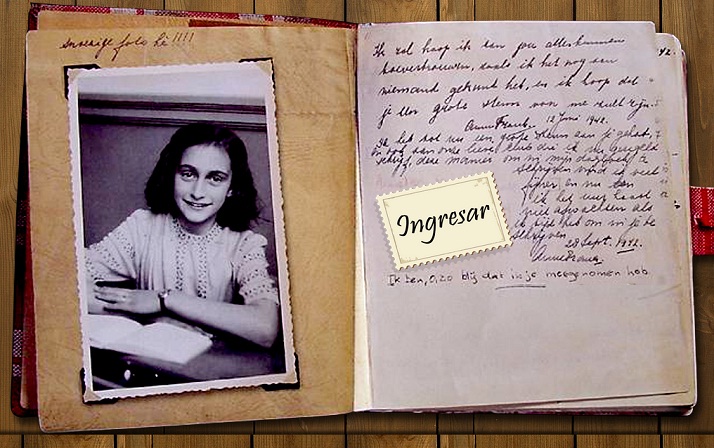 Snoezige foto hè!!!!
Ik zal hoop ik aan jou alles kunnen
toevertrouwen, zoals ik het nog aan
niemand gekund heb, en ik hoop dat
je een grote steun voor me zult zijn.
Anne Frank. 12 Juni 1942.
Ik heb tot nu een grote steun aan je gehad,
en ook aan onze lieve club die ik nu geregeld
schrijf, deze manier om in mijn dagboek
te schrijven vind ik veel
fijner en nu kan
ik het uur haast
niet afwachten als
ik tijd heb om in je te
schrijven
28 Sept. 1942.
Anne Frank.
Ik ben, o, zo blij dat ik je meegenomen heb
42.
Ingresar